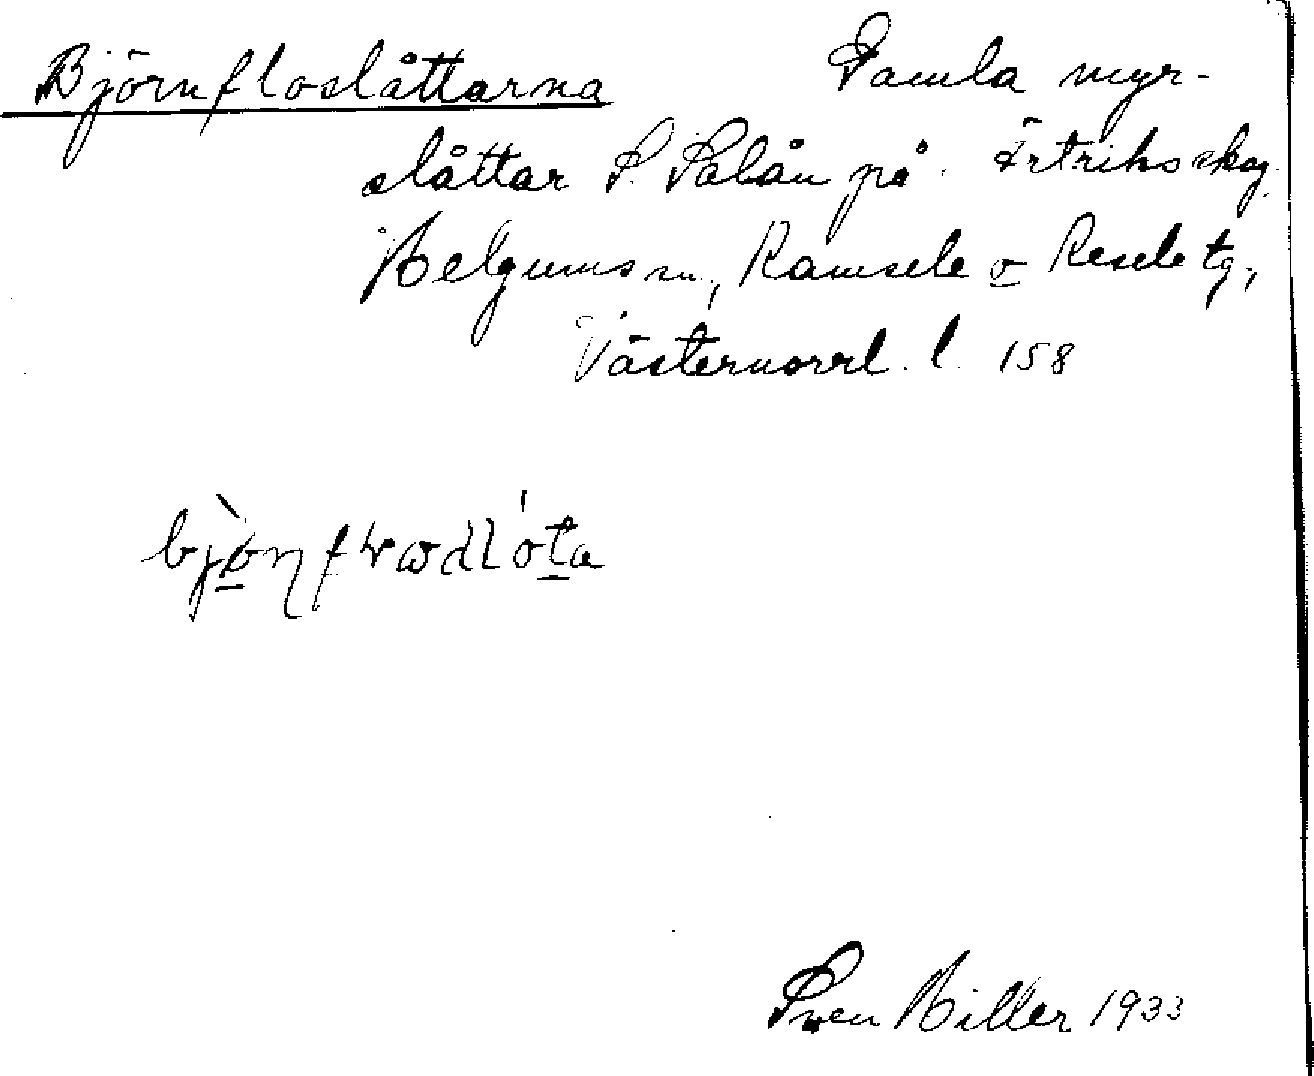 Björnfloslåttarna Gamla myr-
slåttar S. Salån på Örtriks skog.
Helgums sn, Ramsele o Resele tg,
Västernorrl. l. 158
Sven Hiller 1933